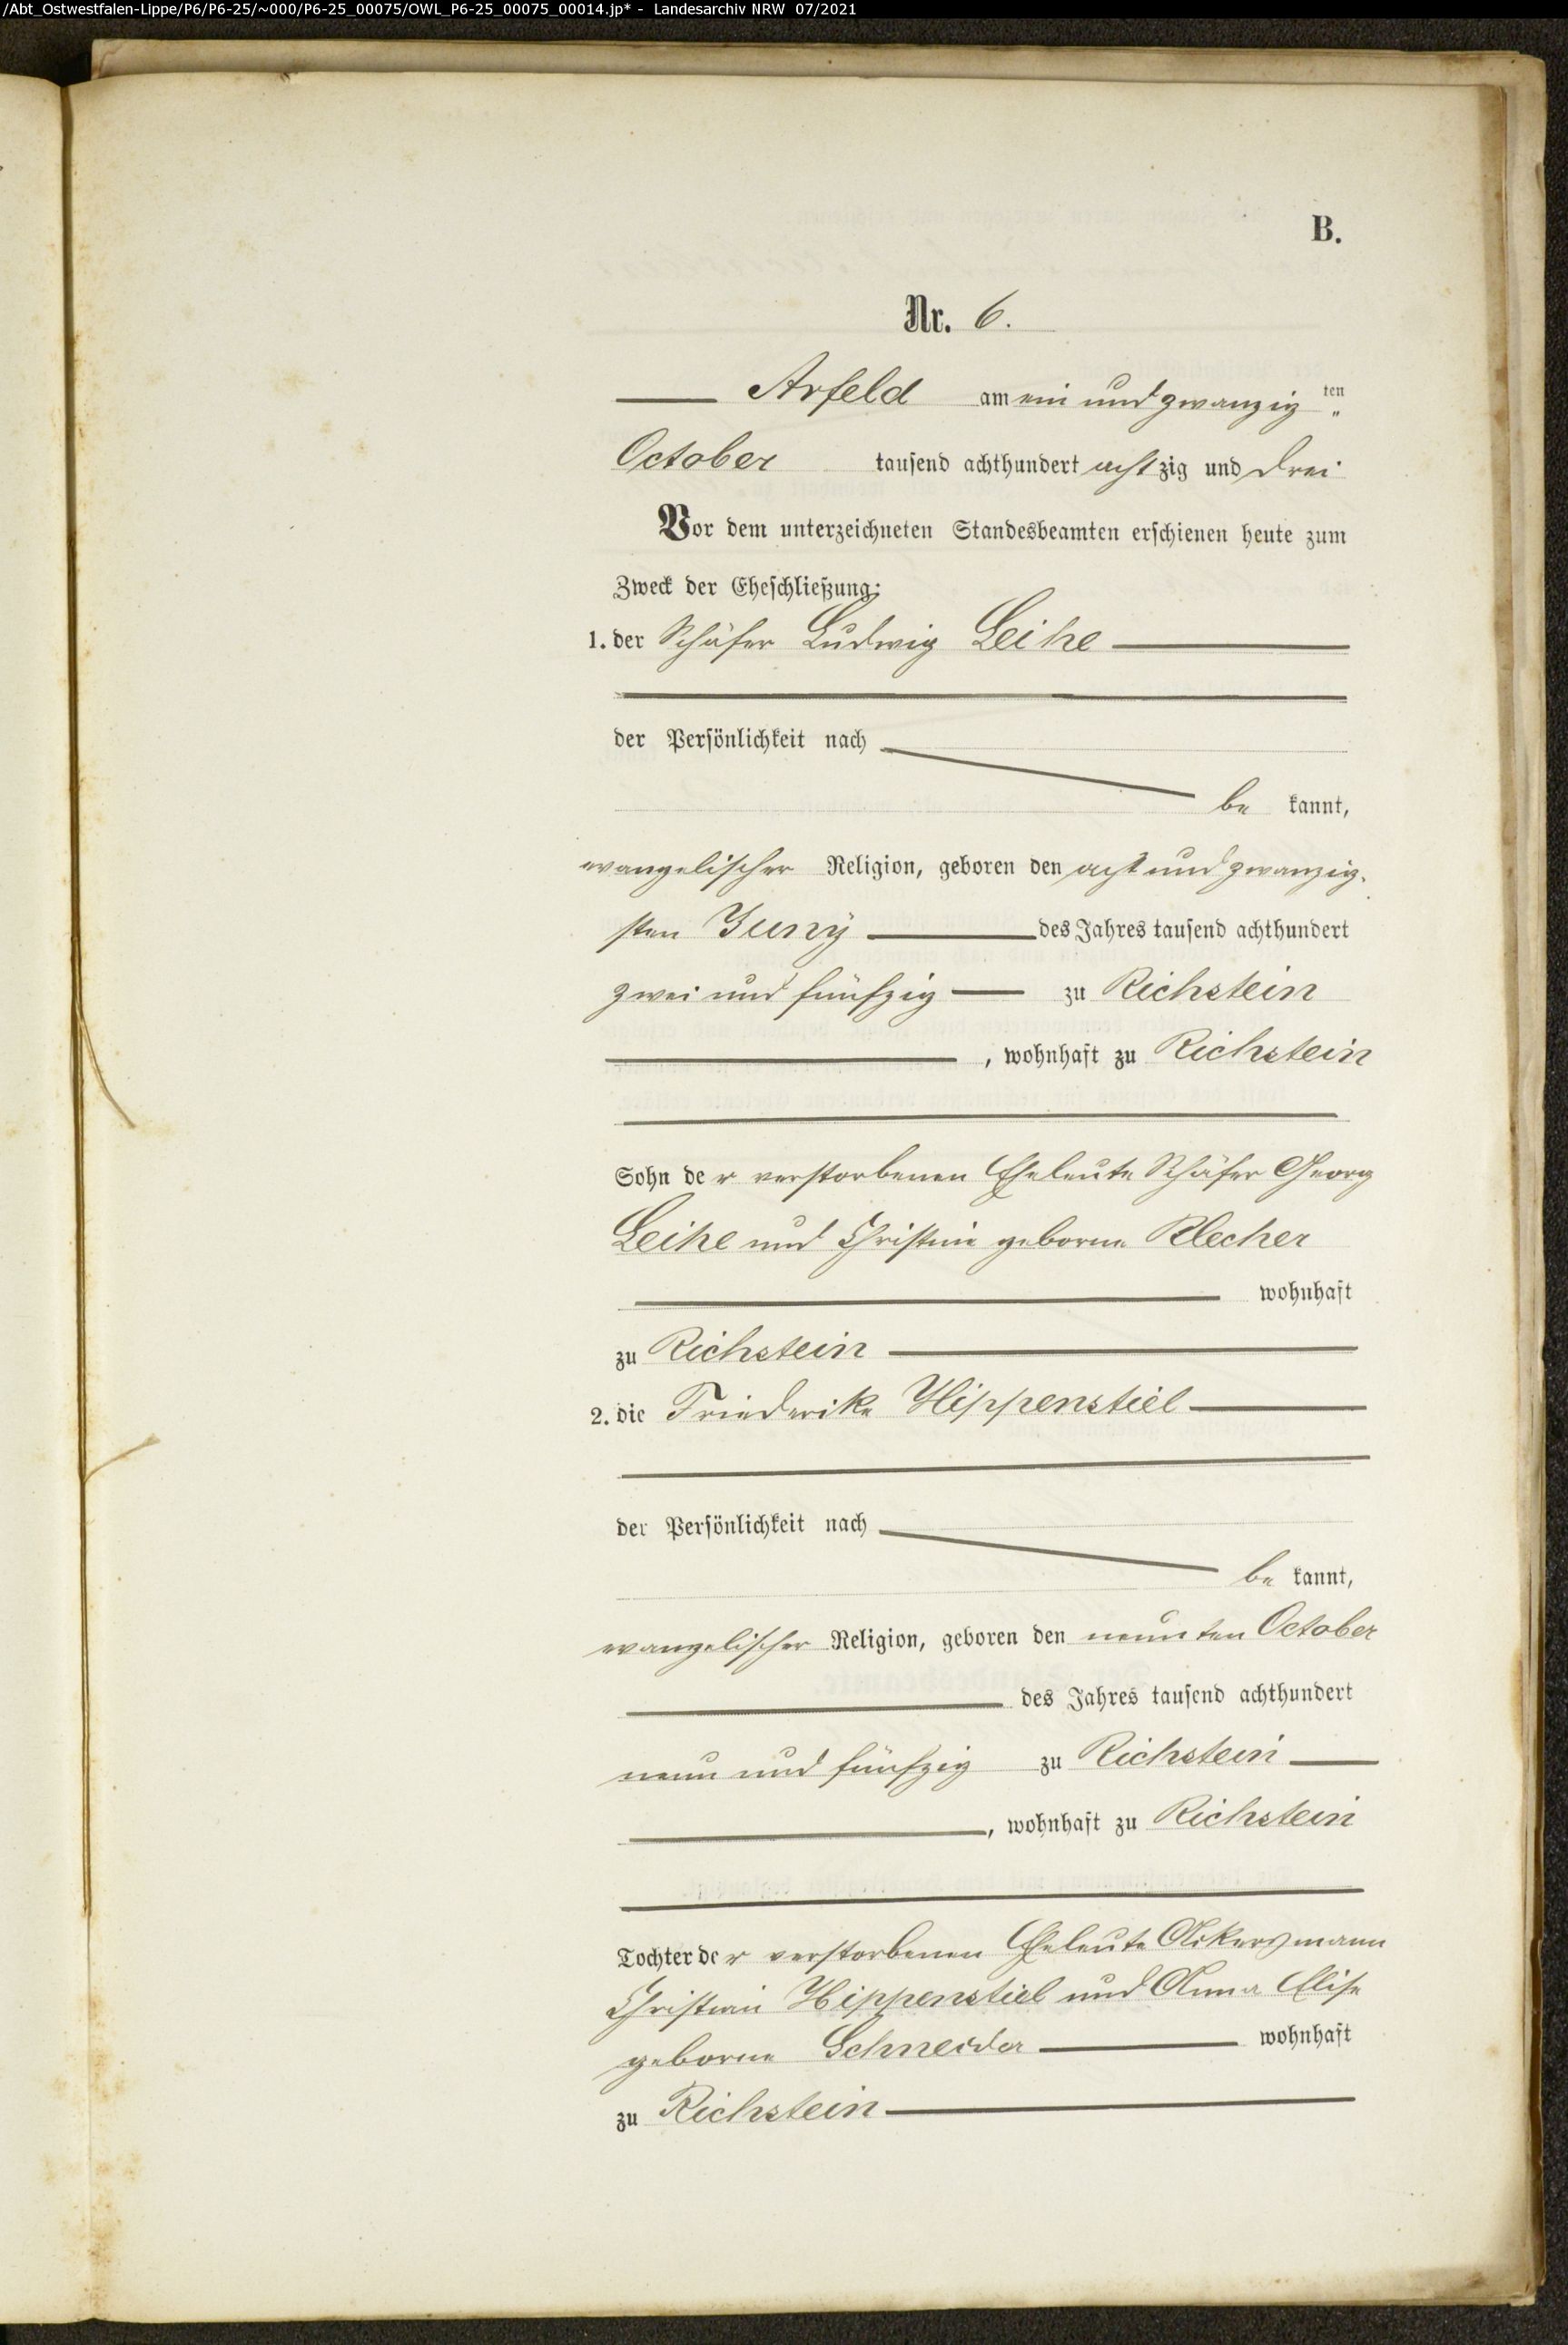 /Abt_Ostwestfalen-Lippe/P6/P6-25/~000/P6-25_00075/OWL_P6-25_00075_00014.jp* - Landesarchiv NRW 07/2021
B.
Nr. 6.
Arfeld am ein und zwanzig ten
October tausend achthundert achtzig und drei
Vor dem unterzeichneten Standesbeamten erschienen heute zum
Zweck der Eheschließung:
1. der Schäfer Ludwig Leihe
der Persönlichkeit nach
be kannt,
evangelischer Religion, geboren den acht und zwanzig-
sten Juny des Jahres tausend achthundert
zwei und fünfzig zu Richstein
, wohnhaft zu Richstein
Sohn der verstorbenen Eheleute Schäfer Georg
Leihe und Christine geborne Blecher
wohnhaft
zu Richstein
2. die Friederike Hippenstiel
der Persönlichkeit nach
be kannt,
evangelischer Religion, geboren den neunten October
des Jahres tausend achthundert
neun und fünfzig zu Richstein
, wohnhaft zu Richstein
Tochter der verstorbenen Eheleute Ackersmann
Christian Hippenstiel und Anna Elise
geborne Schneider wohnhaft
zu Richstein